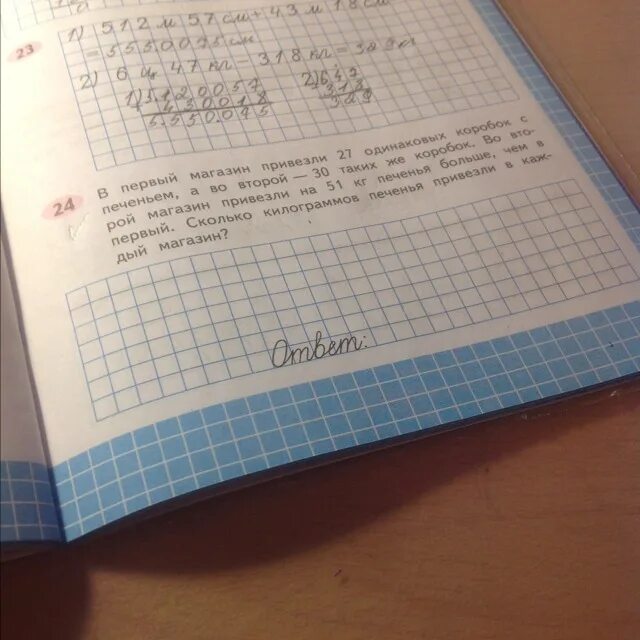 23
1) 512 м 57 см + 43 м 18 см
= 5550075 см
2) 6 ц 47 кг – 318 кг = 329 кг
1) 5120057
430018
5550075
2) 647
318
329
24
В первый магазин привезли 27 одинаковых коробок с
печеньем, а во второй — 30 таких же коробок. Во вто-
рой магазин привезли на 51 кг печенья больше, чем в
первый. Сколько килограммов печенья привезли в каж-
дый магазин?
Ответ: